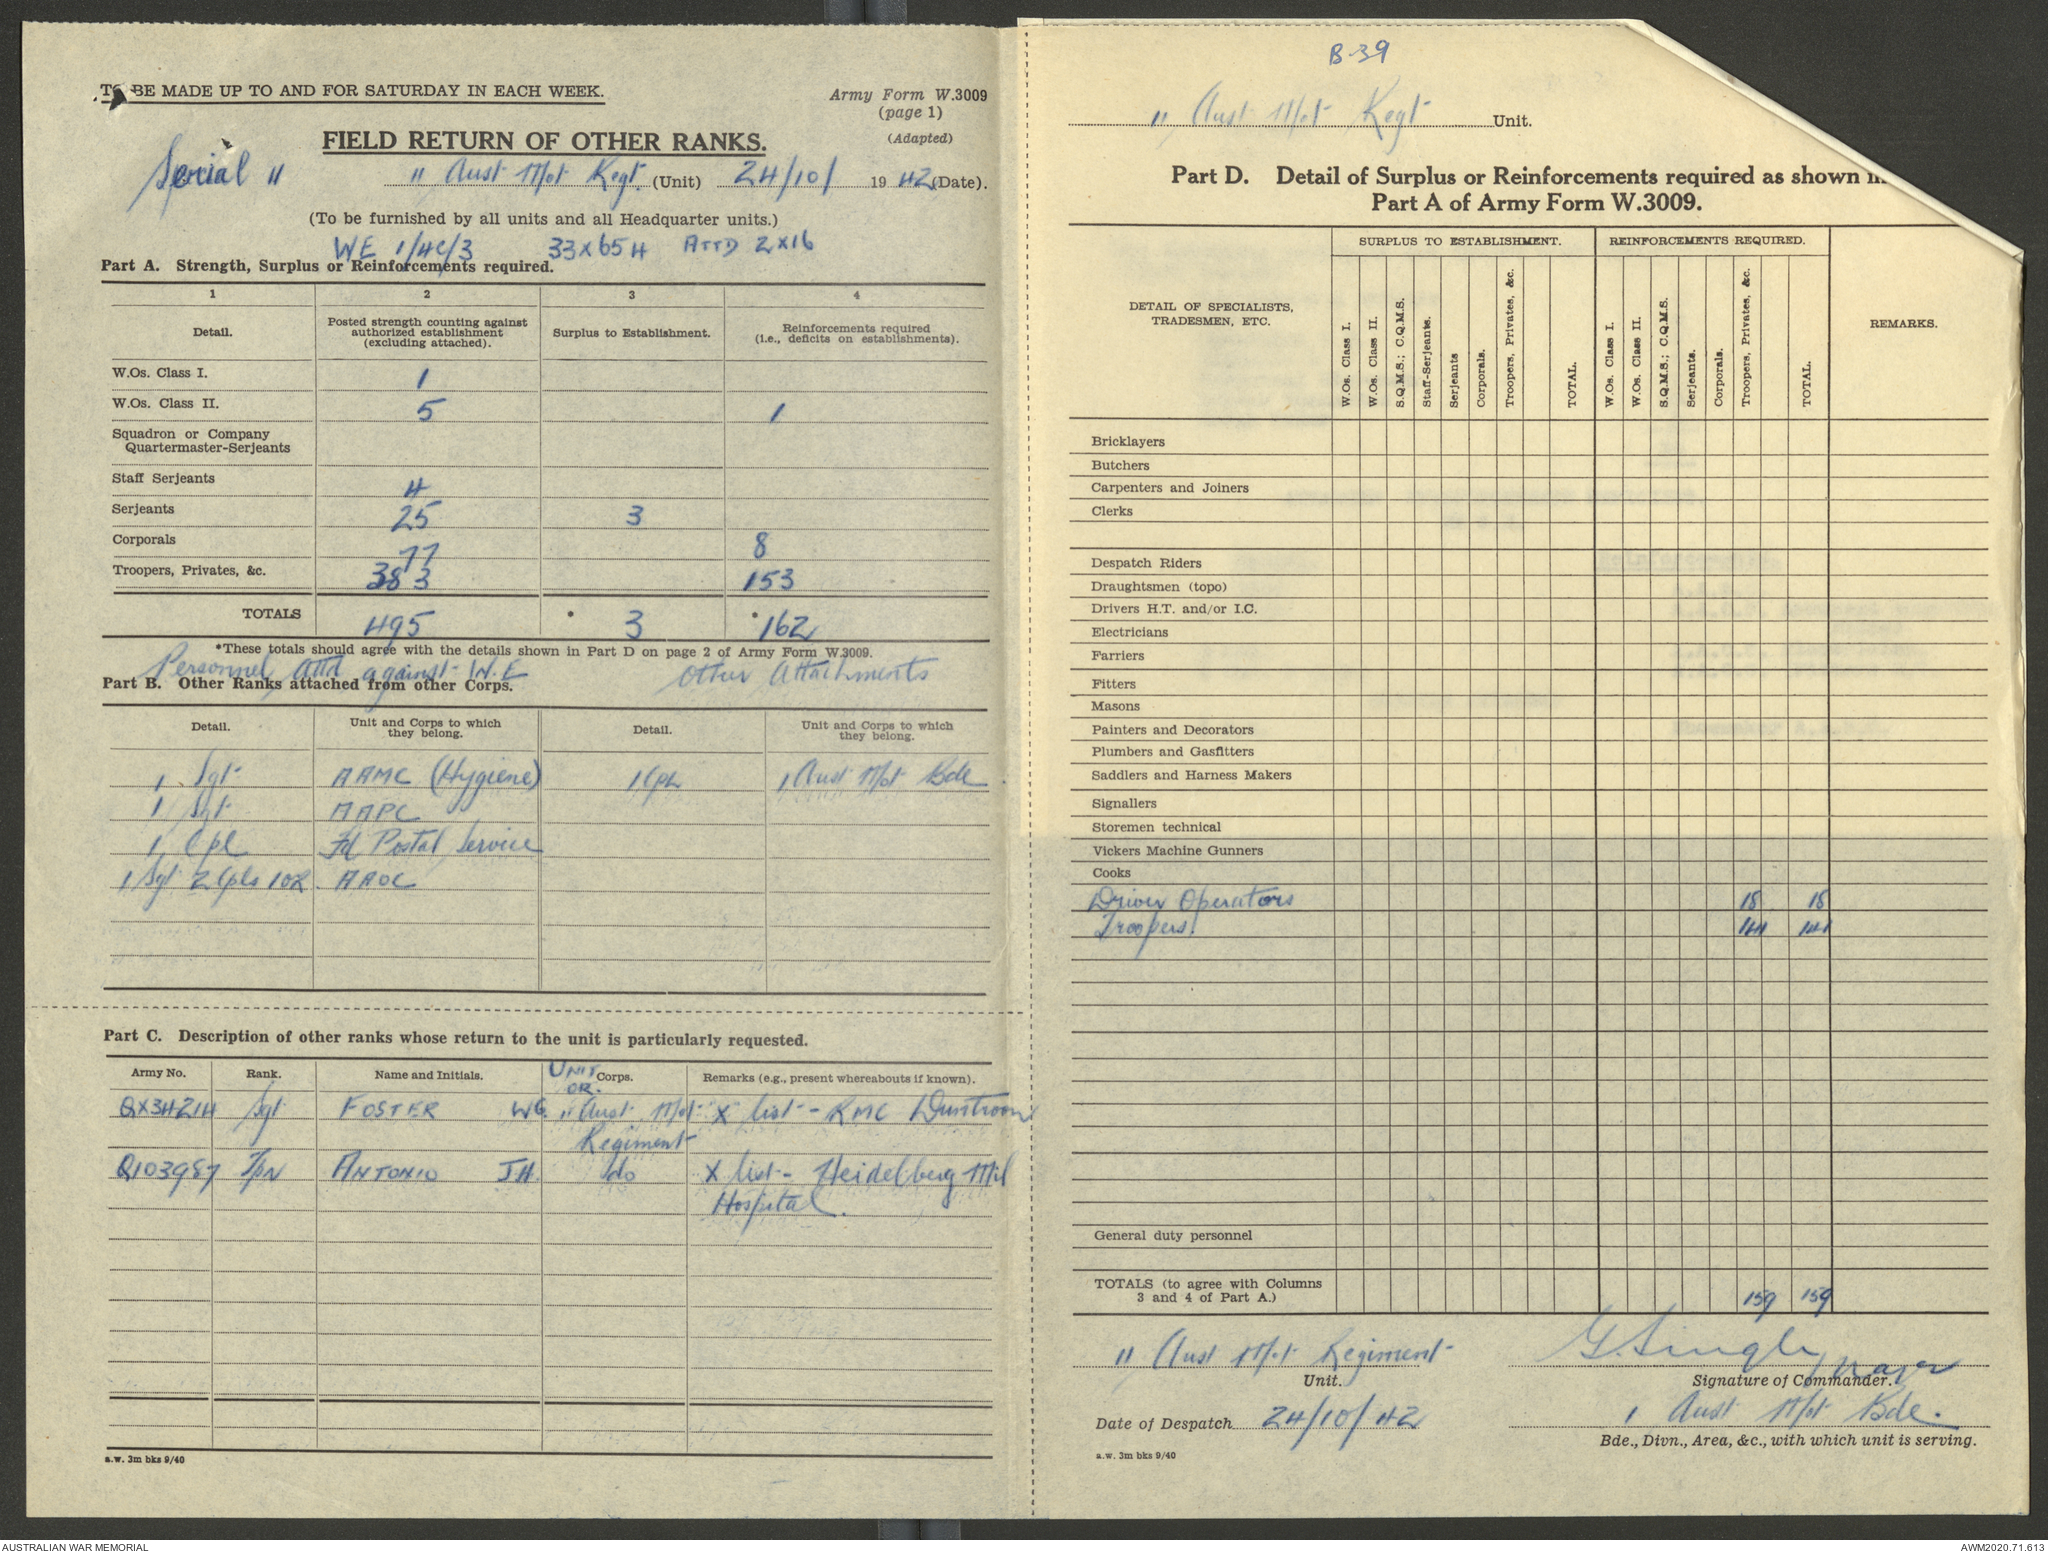 TO BE MADE UP TO AND FOR SATURDAY IN EACH WEEK.
Army Form W.3009
(page 1)
(Adapted)
FIELD RETURN OF OTHER RANKS.
Serial 11
11 Aust Mot Regt. (Unit) 24/10/ 1942 (Date).
(To be furnished by all units and all Headquarter units.)
WE 1/4C/3 33x654 ATTD 2x16
Part A. Strength, Surplus or Reinforcements required.
1 2 3 4
Detail. Posted strength counting against authorized establishment (excluding attached). Surplus to Establishment. Reinforcements required (i.e., deficits on establishments).
W.Os. Class I. 1
W.Os. Class II. 5 1
Squadron or Company
Quartermaster-Serjeants
Staff Serjeants 4
Serjeants 25 3
Corporals 77 8
Troopers, Privates, &c. 383 153
TOTALS 495 * 3 * 162
*These totals should agree with the details shown in Part D on page 2 of Army Form W.3009.
Personnel attd against W.E Other Attachments
Part B. Other Ranks attached from other Corps.
Detail. Unit and Corps to which they belong. Detail. Unit and Corps to which they belong.
1 Sgt AAMC (Hygiene) 1 Cpl 1 Aust Mot Bde
1 Sgt AAPC
1 Cpl Fd Postal Service
1 Sgt 2 Cpls 1 OR. AAOC
Part C. Description of other ranks whose return to the unit is particularly requested.
Army No. Rank. Name and Initials. UNIT OR. Corps. Remarks (e.g., present whereabouts if known).
QX34214 Sgt FOSTER WG. 11 Aust Mot Regiment X list - RMC Duntroon
Q103987 Tpr ANTONIO JH. do X list - Heidelberg Mil
Hospital.
a.w. 3m bks 9/40
B-39
11 Aust Mot Regt Unit.
Part D. Detail of Surplus or Reinforcements required as shown in
Part A of Army Form W.3009.
DETAIL OF SPECIALISTS, TRADESMEN, ETC. SURPLUS TO ESTABLISHMENT. REINFORCEMENTS REQUIRED. REMARKS.
W.Os. Class I. W.Os. Class II. S.Q.M.S.; C.Q.M.S. Staff-Serjeants. Serjeants Corporals. Troopers, Privates, &c. TOTAL. W.Os. Class I. W.Os. Class II. S.Q.M.S.; C.Q.M.S. Serjeants. Corporals. Troopers, Privates, &c. TOTAL.
Bricklayers
Butchers
Carpenters and Joiners
Clerks
Despatch Riders
Draughtsmen (topo)
Drivers H.T. and/or I.C.
Electricians
Farriers
Fitters
Masons
Painters and Decorators
Plumbers and Gasfitters
Saddlers and Harness Makers
Signallers
Storemen technical
Vickers Machine Gunners
Cooks
Driver Operators 18 18
Troopers 141 141
General duty personnel
TOTALS (to agree with Columns
3 and 4 of Part A.) 159 159
11 Aust Mot Regiment
Unit.
Major
Signature of Commander.
Date of Despatch 24/10/42
1 Aust Mot Bde.
Bde., Divn., Area, &c., with which unit is serving.
a.w. 3m bks 9/40
AUSTRALIAN WAR MEMORIAL
AWM2020.71.613